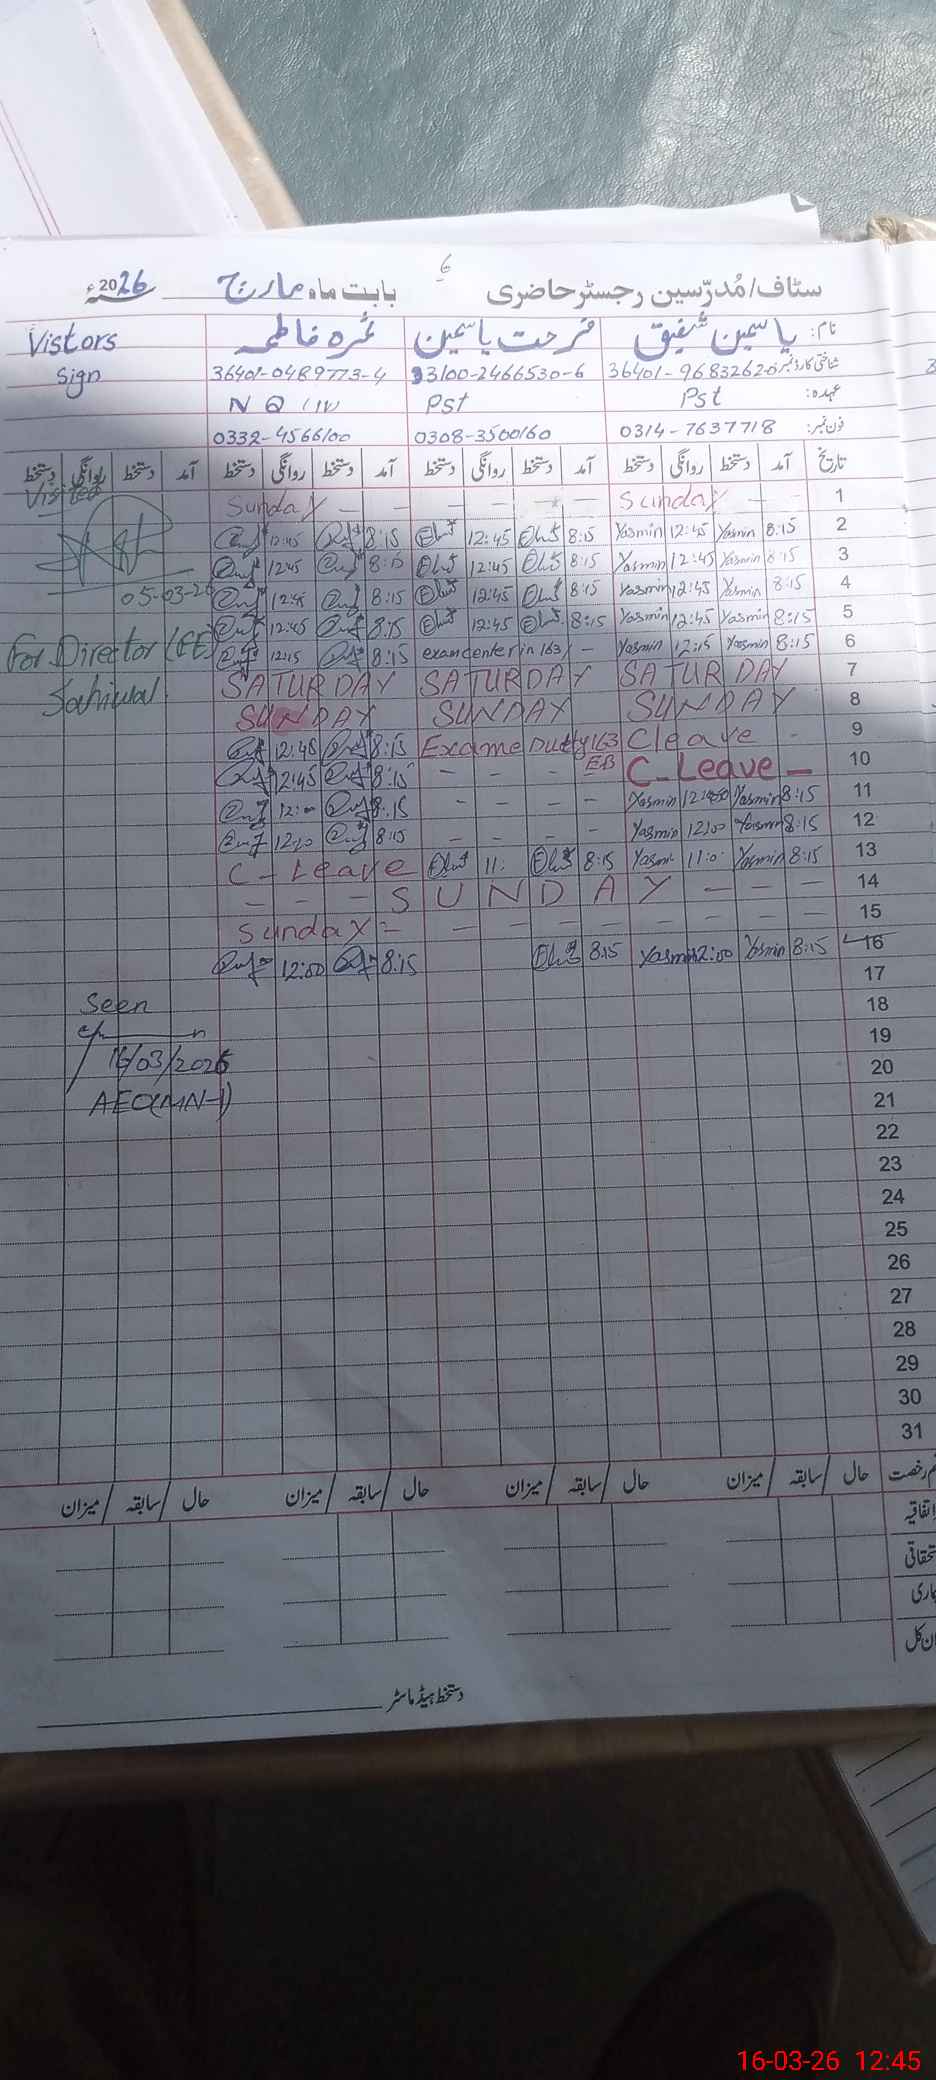 6
سٹاف/مُدرّسین رجسٹر حاضری بابت ماہ مارچ 2026ء
نام: یاسمین شفیق فرحت یاسمین ثمرہ فاطمہ Vistors
شناختی کارڈ نمبر 36401-9683262-6 33100-2466530-6 36401-0489773-4 Sign
عہدہ: Pst Pst N Q
فون نمبر: 0314-7637718 0308-3500160 0332-4566100
تاریخ آمد دستخط روانگی دستخط آمد دستخط روانگی دستخط آمد دستخط روانگی دستخط آمد دستخط روانگی دستخط
1 Sunday - - - - - - Sunday - - Visited
2 8:15 Yasmin 12:45 Yasmin 8:15 12:45 8:15 12:45
3 8:15 Yasmin 12:45 Yasmin 8:15 12:45 8:15 12:45
4 8:15 Yasmin 12:45 Yasmin 8:15 12:45 8:15 05-03-26
5 8:15 Yasmin 12:45 Yasmin 8:15 12:45 8:15 12:45
For Director (EE)
6 8:15 Yasmin 12:15 Yasmin exam center in 163/ - 8:15 12:15
Sahiwal
7 SATURDAY SATURDAY SATURDAY
8 SUNDAY SUNDAY SUNDAY
9 C leave - Exame Dutty 163 EB 8:15 12:45
10 C-Leave - - - - - 8:15 12:45
11 8:15 Yasmin Yasmin - - - - 8:15 12:00
12 8:15 Yasmin 12:00 Yasmin - - - - 8:15
13 8:15 Yasmin 11:0 8:15 11: C-Leave
14 - - - SUNDAY - - -
15 Sunday - - - - - - - - -
16 8:15 Yasmin 12:00 Yasmin 8:15 8:15 12:00
17
Seen
18
19
16/03/2026
20
AEO(MN-1)
21
22
23
24
25
26
27
28
29
30
31
حال / سابقہ / میزان حال / سابقہ / میزان حال / سابقہ / میزان حال / سابقہ / میزان
دستخط ہیڈ ماسٹر
16-03-26 12:45